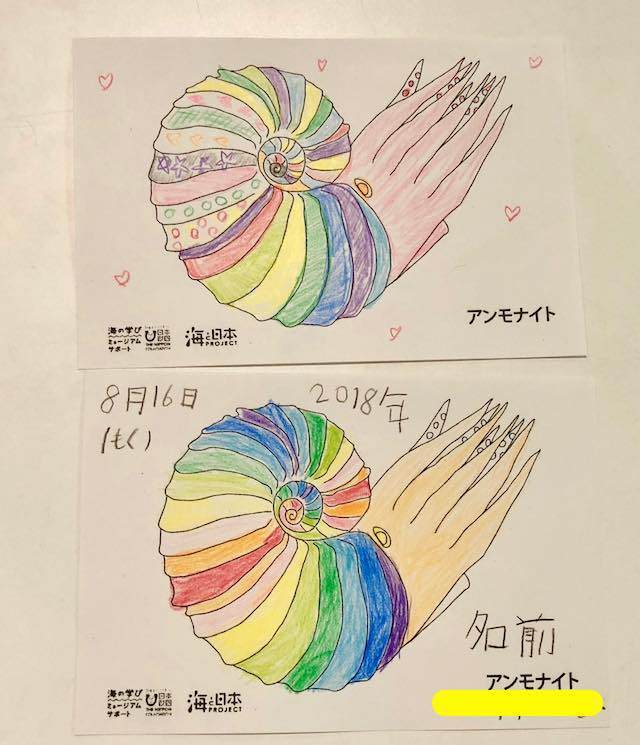 海の学び
ミュージアム
サポート
日本
財団
THE NIPPON
FOUNDATION
海と日本
PROJECT
アンモナイト
8月16日
(もく)
2018年
名前
海の学び
ミュージアム
サポート
日本
財団
THE NIPPON
FOUNDATION
海と日本
PROJECT
アンモナイト